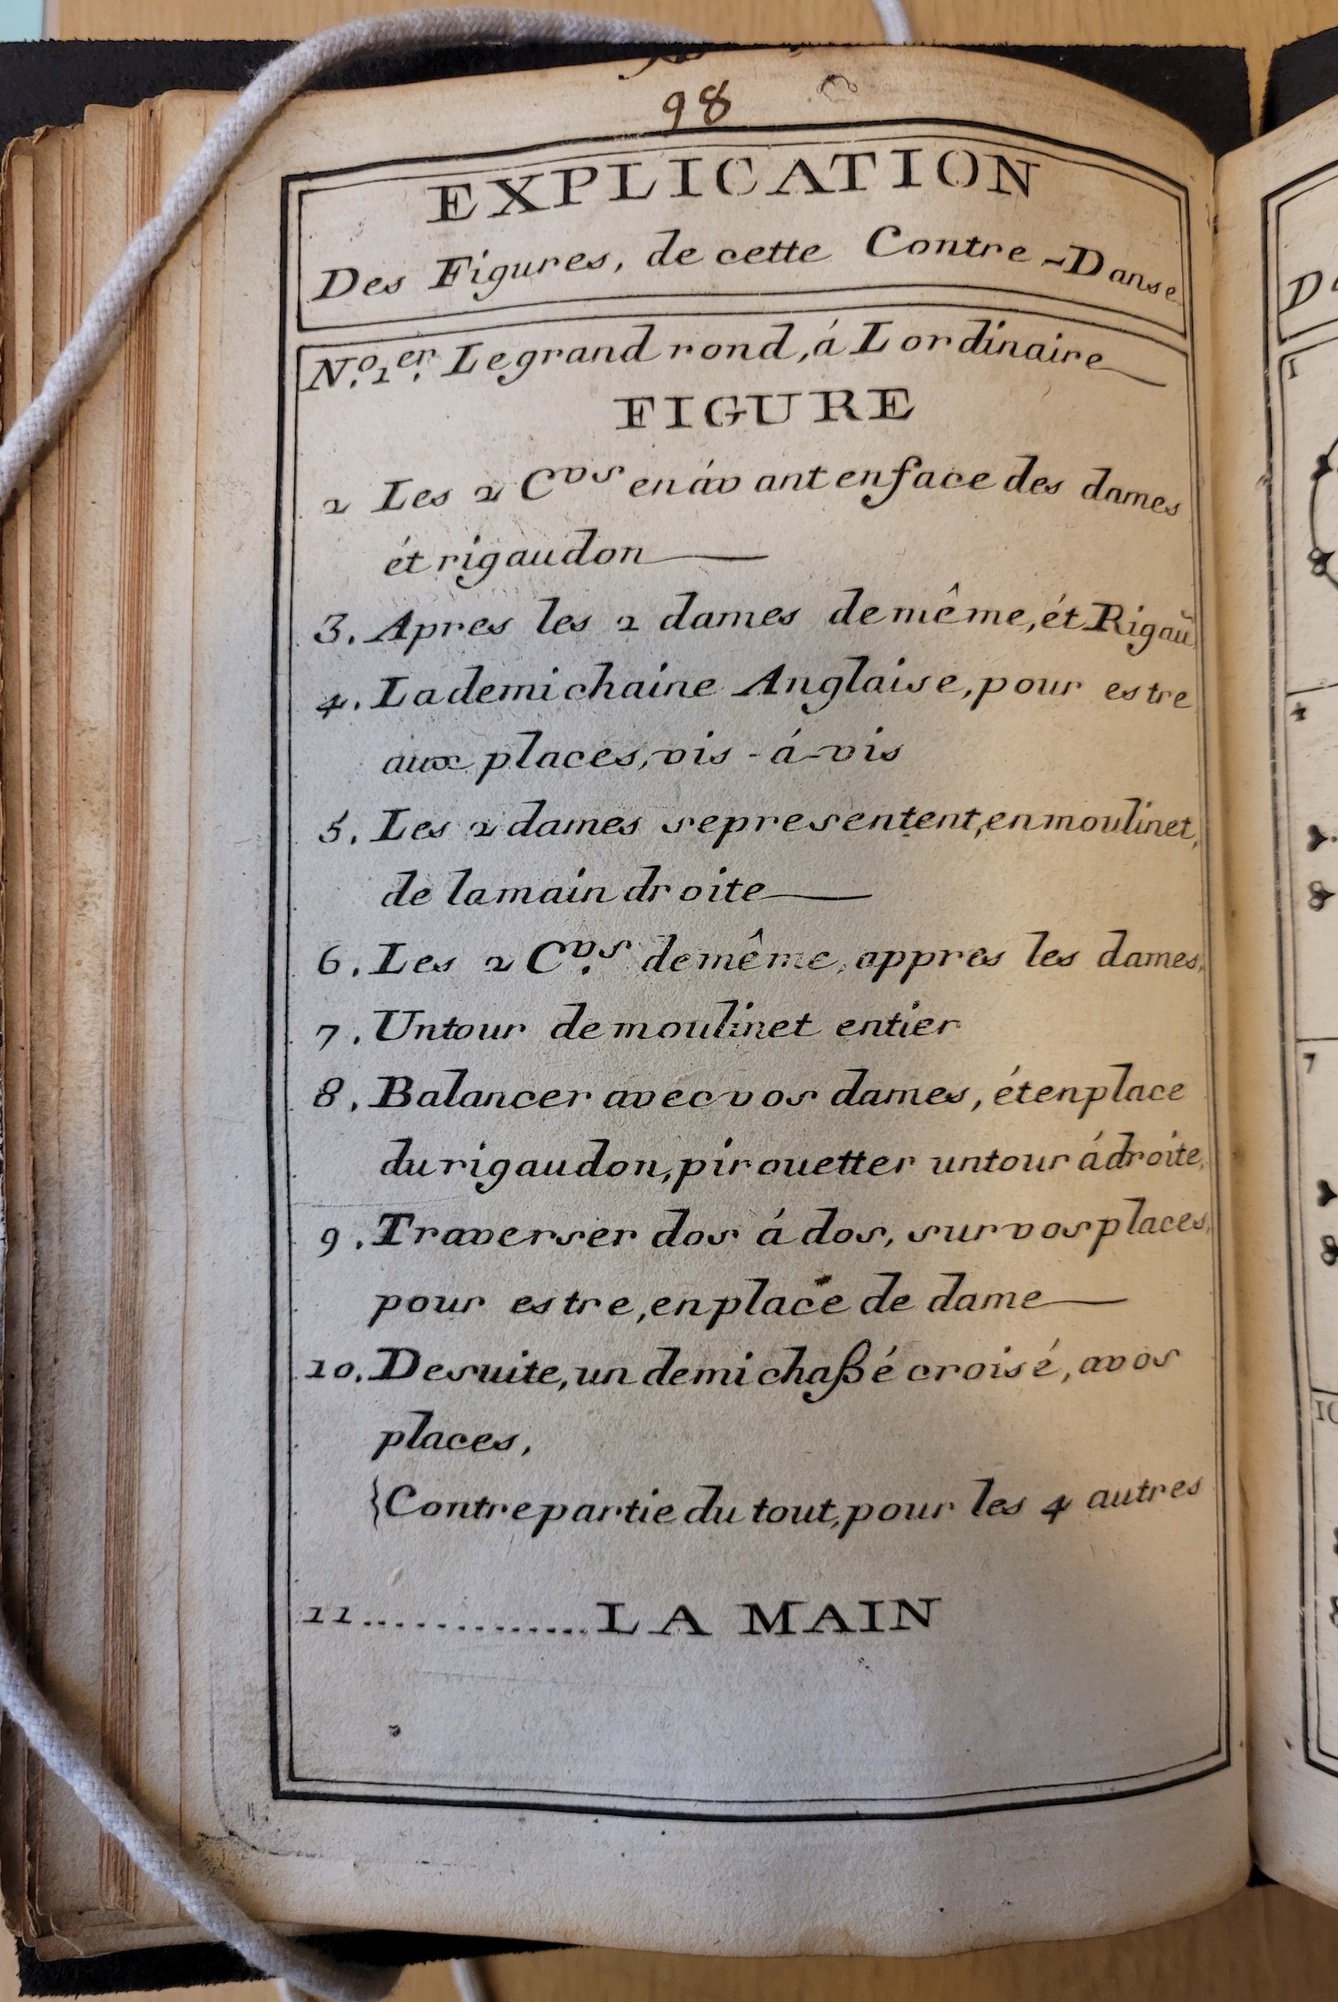 98
EXPLICATION
Des Figures, de cette Contre-Danse
N.º1.er Le grand rond, á L ordinaire
FIGURE
2 Les 2 Cvs en ávant en face des dames
ét rigaudon
3. Apres les 2 dames de même, ét Rigau
4. La demi chaine Anglaise, pour estre
aux places, vis-á-vis
5. Les 2 dames se presentent, en moulinet,
de la main droite
6. Les 2 Cvs de même, appres les dames,
7. Un tour de moulinet entier
8. Balancer avec vos dames, ét en place
du rigaudon, pirouetter un tour á droite,
9. Traverser dos á dos, sur vos places,
pour estre, en place de dame
10. De suite, un demi chaßé croisé, a vos
places,
{Contre partie du tout, pour les 4 autres
11............LA MAIN
1
4
7
10